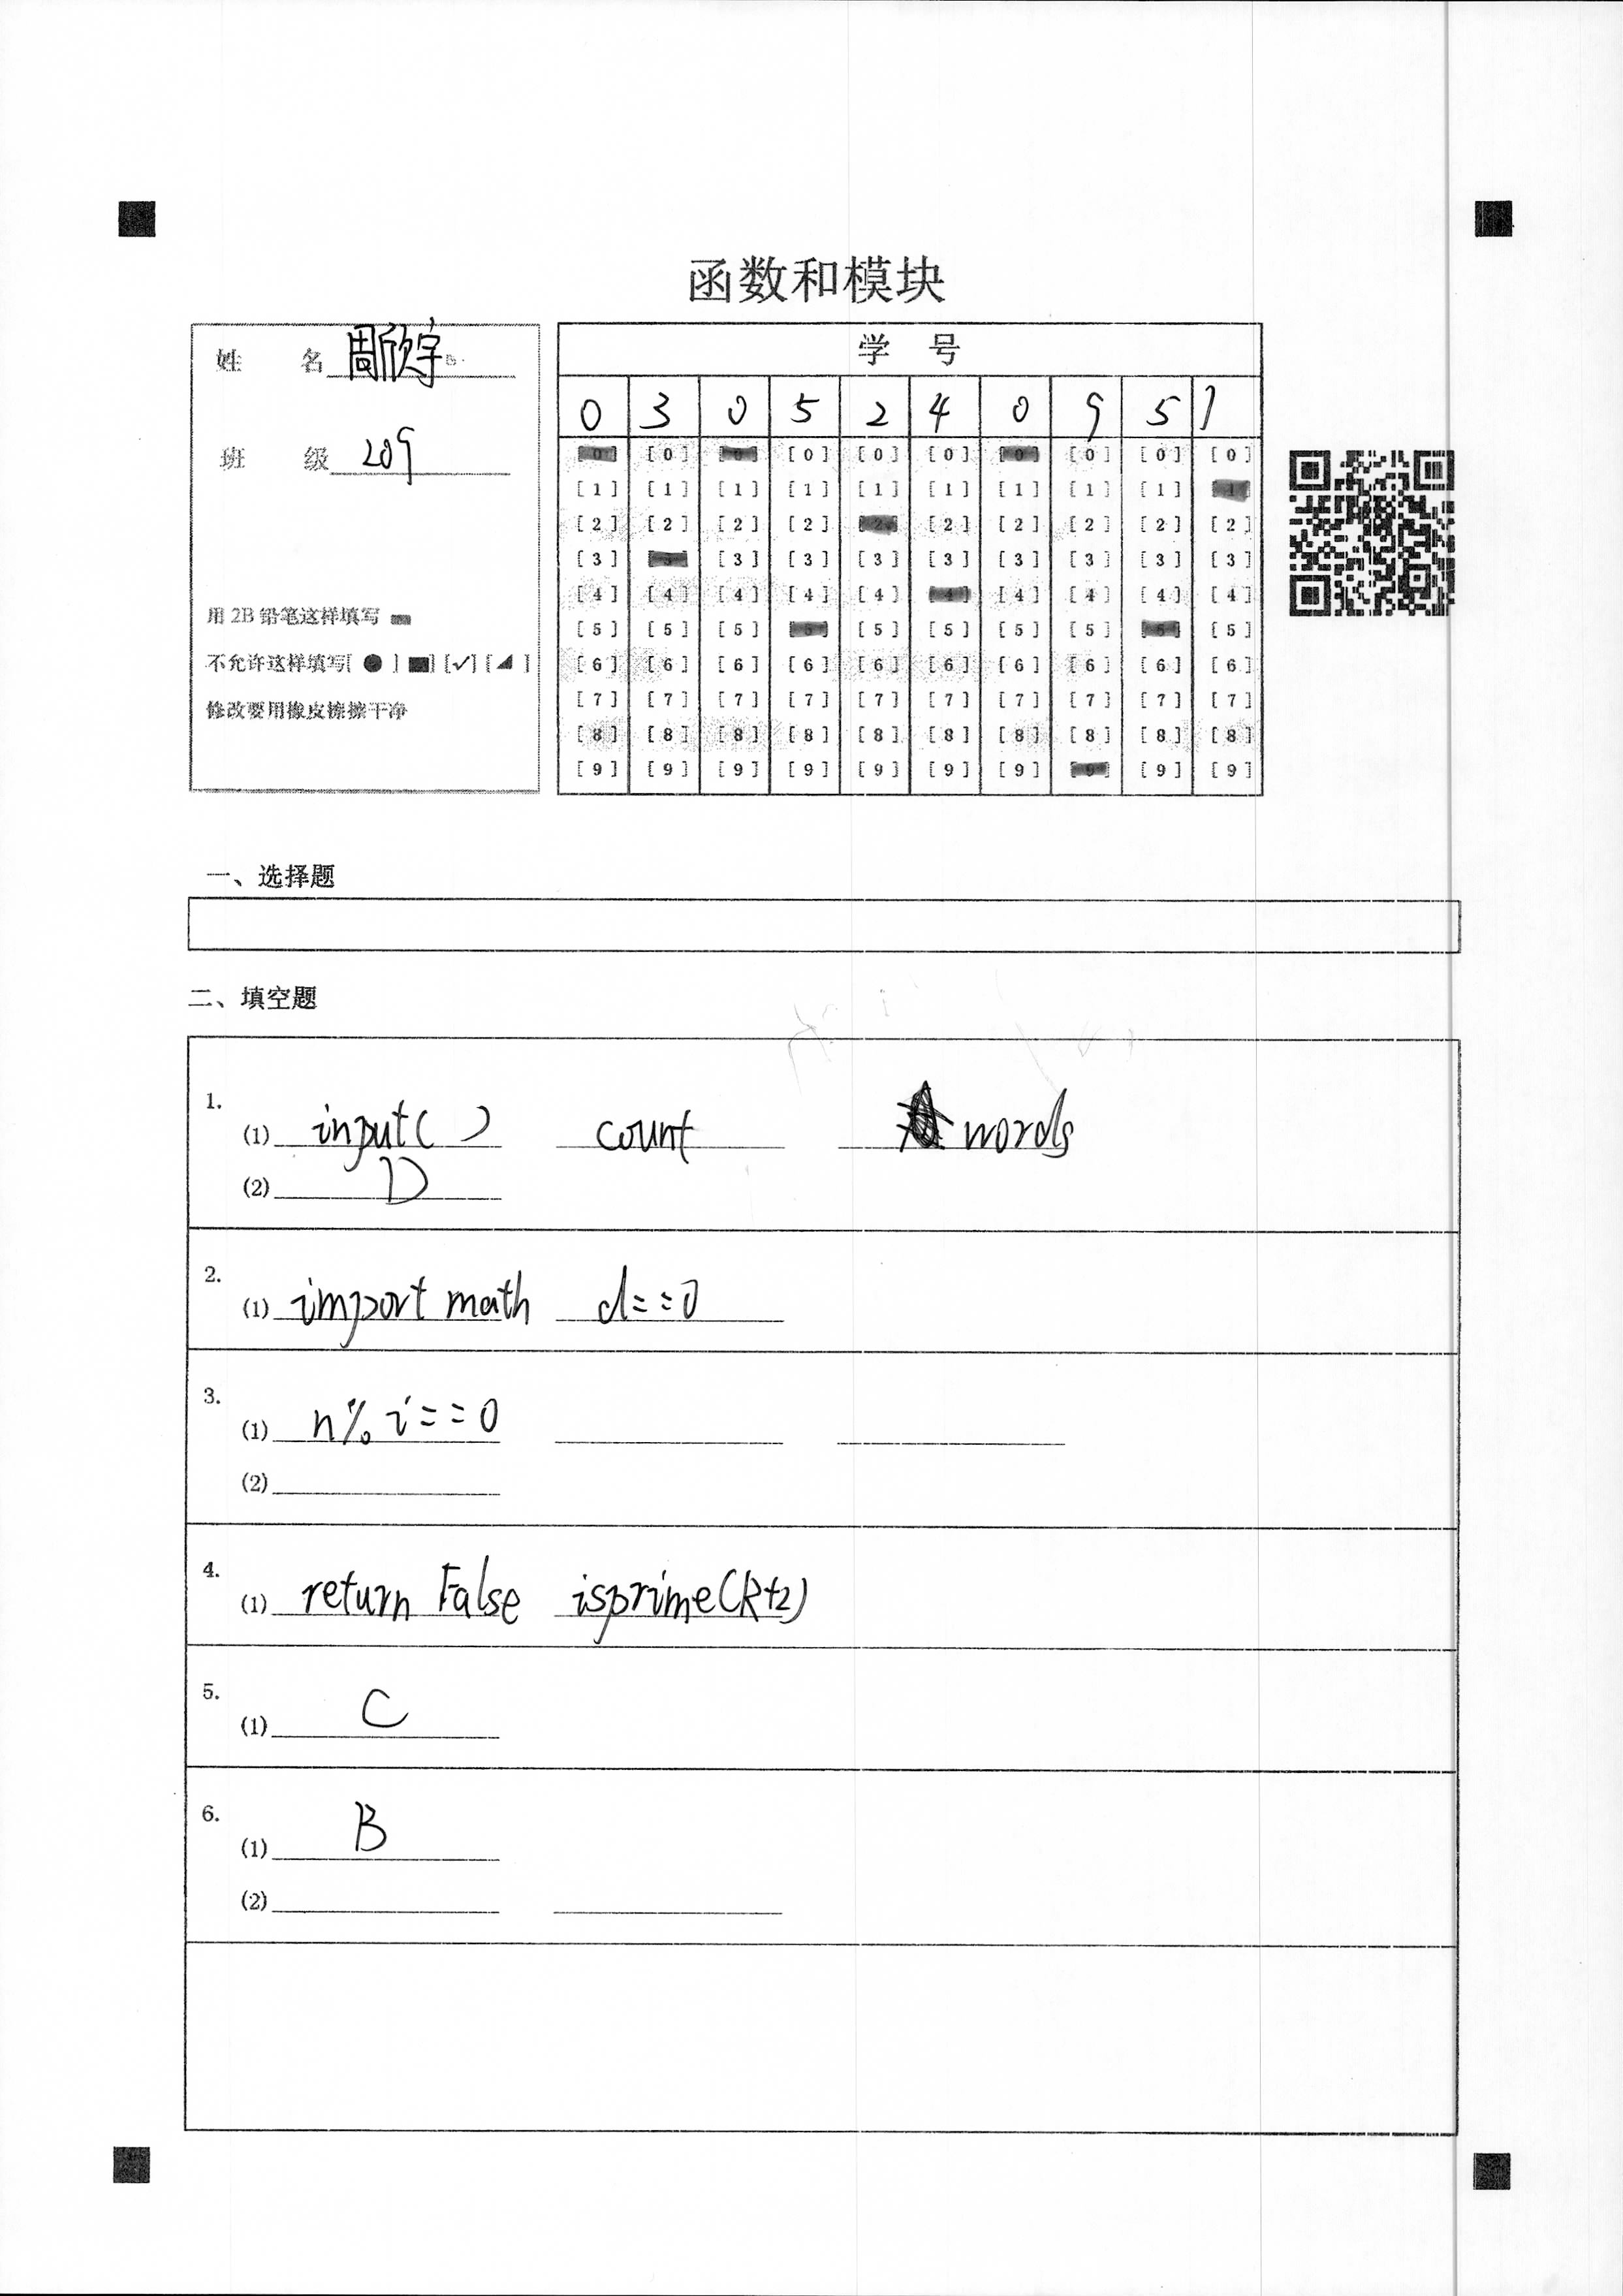 函数和模块
姓 名 周欣宇
班 级 209
用 2B 铅笔这样填写
不允许这样填写[ ● ] [■] [✓] [◢ ]
修改要用橡皮擦擦干净
学 号
0 3 0 5 2 4 0 9 5 1
[0] [0] [0] [0] [0] [0] [0] [0] [0] [0]
[1] [1] [1] [1] [1] [1] [1] [1] [1] [1]
[2] [2] [2] [2] [2] [2] [2] [2] [2] [2]
[3] [3] [3] [3] [3] [3] [3] [3] [3] [3]
[4] [4] [4] [4] [4] [4] [4] [4] [4] [4]
[5] [5] [5] [5] [5] [5] [5] [5] [5] [5]
[6] [6] [6] [6] [6] [6] [6] [6] [6] [6]
[7] [7] [7] [7] [7] [7] [7] [7] [7] [7]
[8] [8] [8] [8] [8] [8] [8] [8] [8] [8]
[9] [9] [9] [9] [9] [9] [9] [9] [9] [9]
一、选择题
二、填空题
1.
(1) input( ) count words
(2) D
2.
(1) import math d==0
3.
(1) n%i==0
(2)
4.
(1) return False isprime(k+2)
5.
(1) C
6.
(1) B
(2)